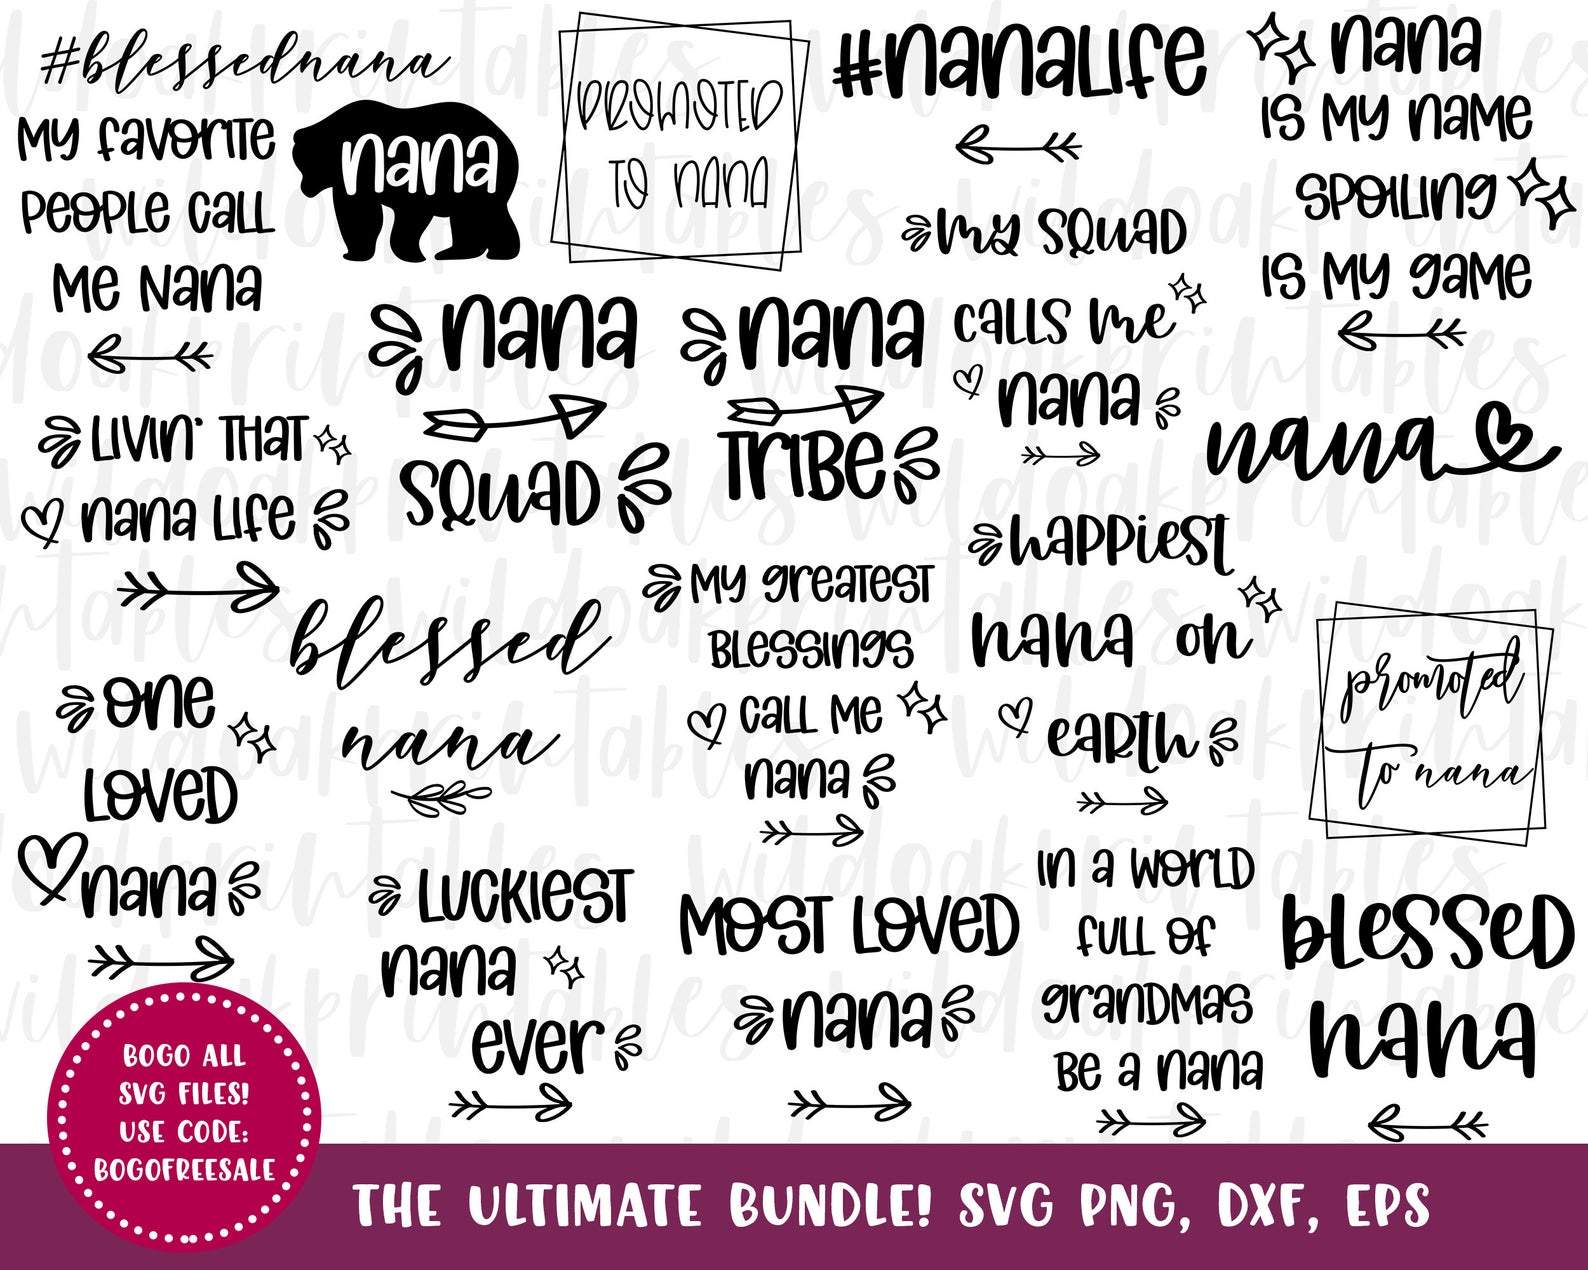 #blessednana
my favorite
people call
me nana
nana
PROMOTED
TO NANA
#nanalife
nana
is my name
spoiling
is my game
my squad
calls me
nana
nana
squad
nana
tribe
nana
livin' that
nana life
happiest
nana on
earth
my greatest
blessings
call me
nana
blessed
nana
promoted
to nana
one
loved
nana
luckiest
nana
ever
most loved
nana
in a world
full of
grandmas
be a nana
blessed
nana
BOGO ALL
SVG FILES!
USE CODE:
BOGOFREESALE
THE ULTIMATE BUNDLE! SVG PNG, DXF, EPS
wildoakprintables